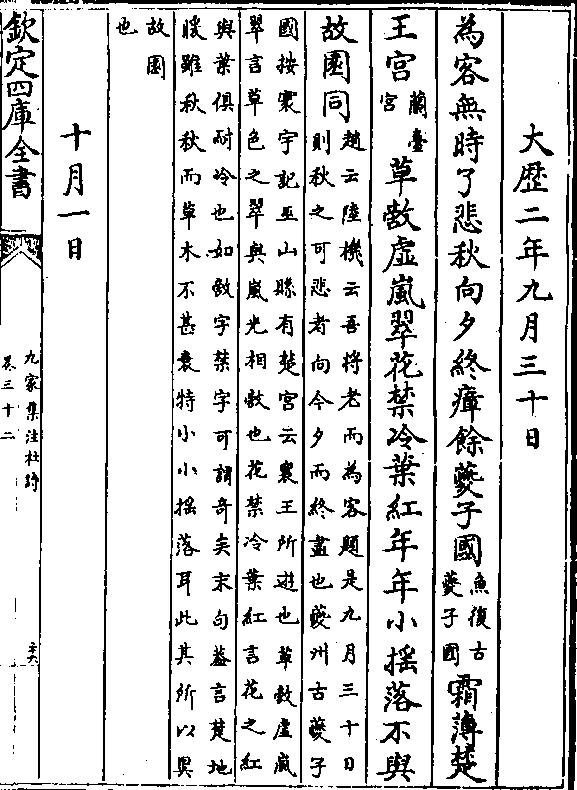 大歴二年九月三十日
為客無時了悲秋向夕終瘴餘夔子國
魚復古
夔子國
霜薄楚
王宮
蘭臺
宮
草敵虛嵐翠花禁冷葉紅年年小揺落不與
故園同
趙云陸機云吾將老而為客題是九月三十日
則秋之可悲者向今夕而終盡也夔州古夔子
國按寰宇記巫山縣有楚宮云襄王所遊也草敵虛嵐
翠言草色之翠與嵐光相敵也花禁冷葉紅言花之紅
與葉俱耐冷也如敵字禁字可謂奇矣末句葢言楚地
暖雖秋秋而草木不甚衰特小小揺落耳此其所以異
故園
也
十月一日
欽定四庫全書
九家集注杜詩
卷三十二